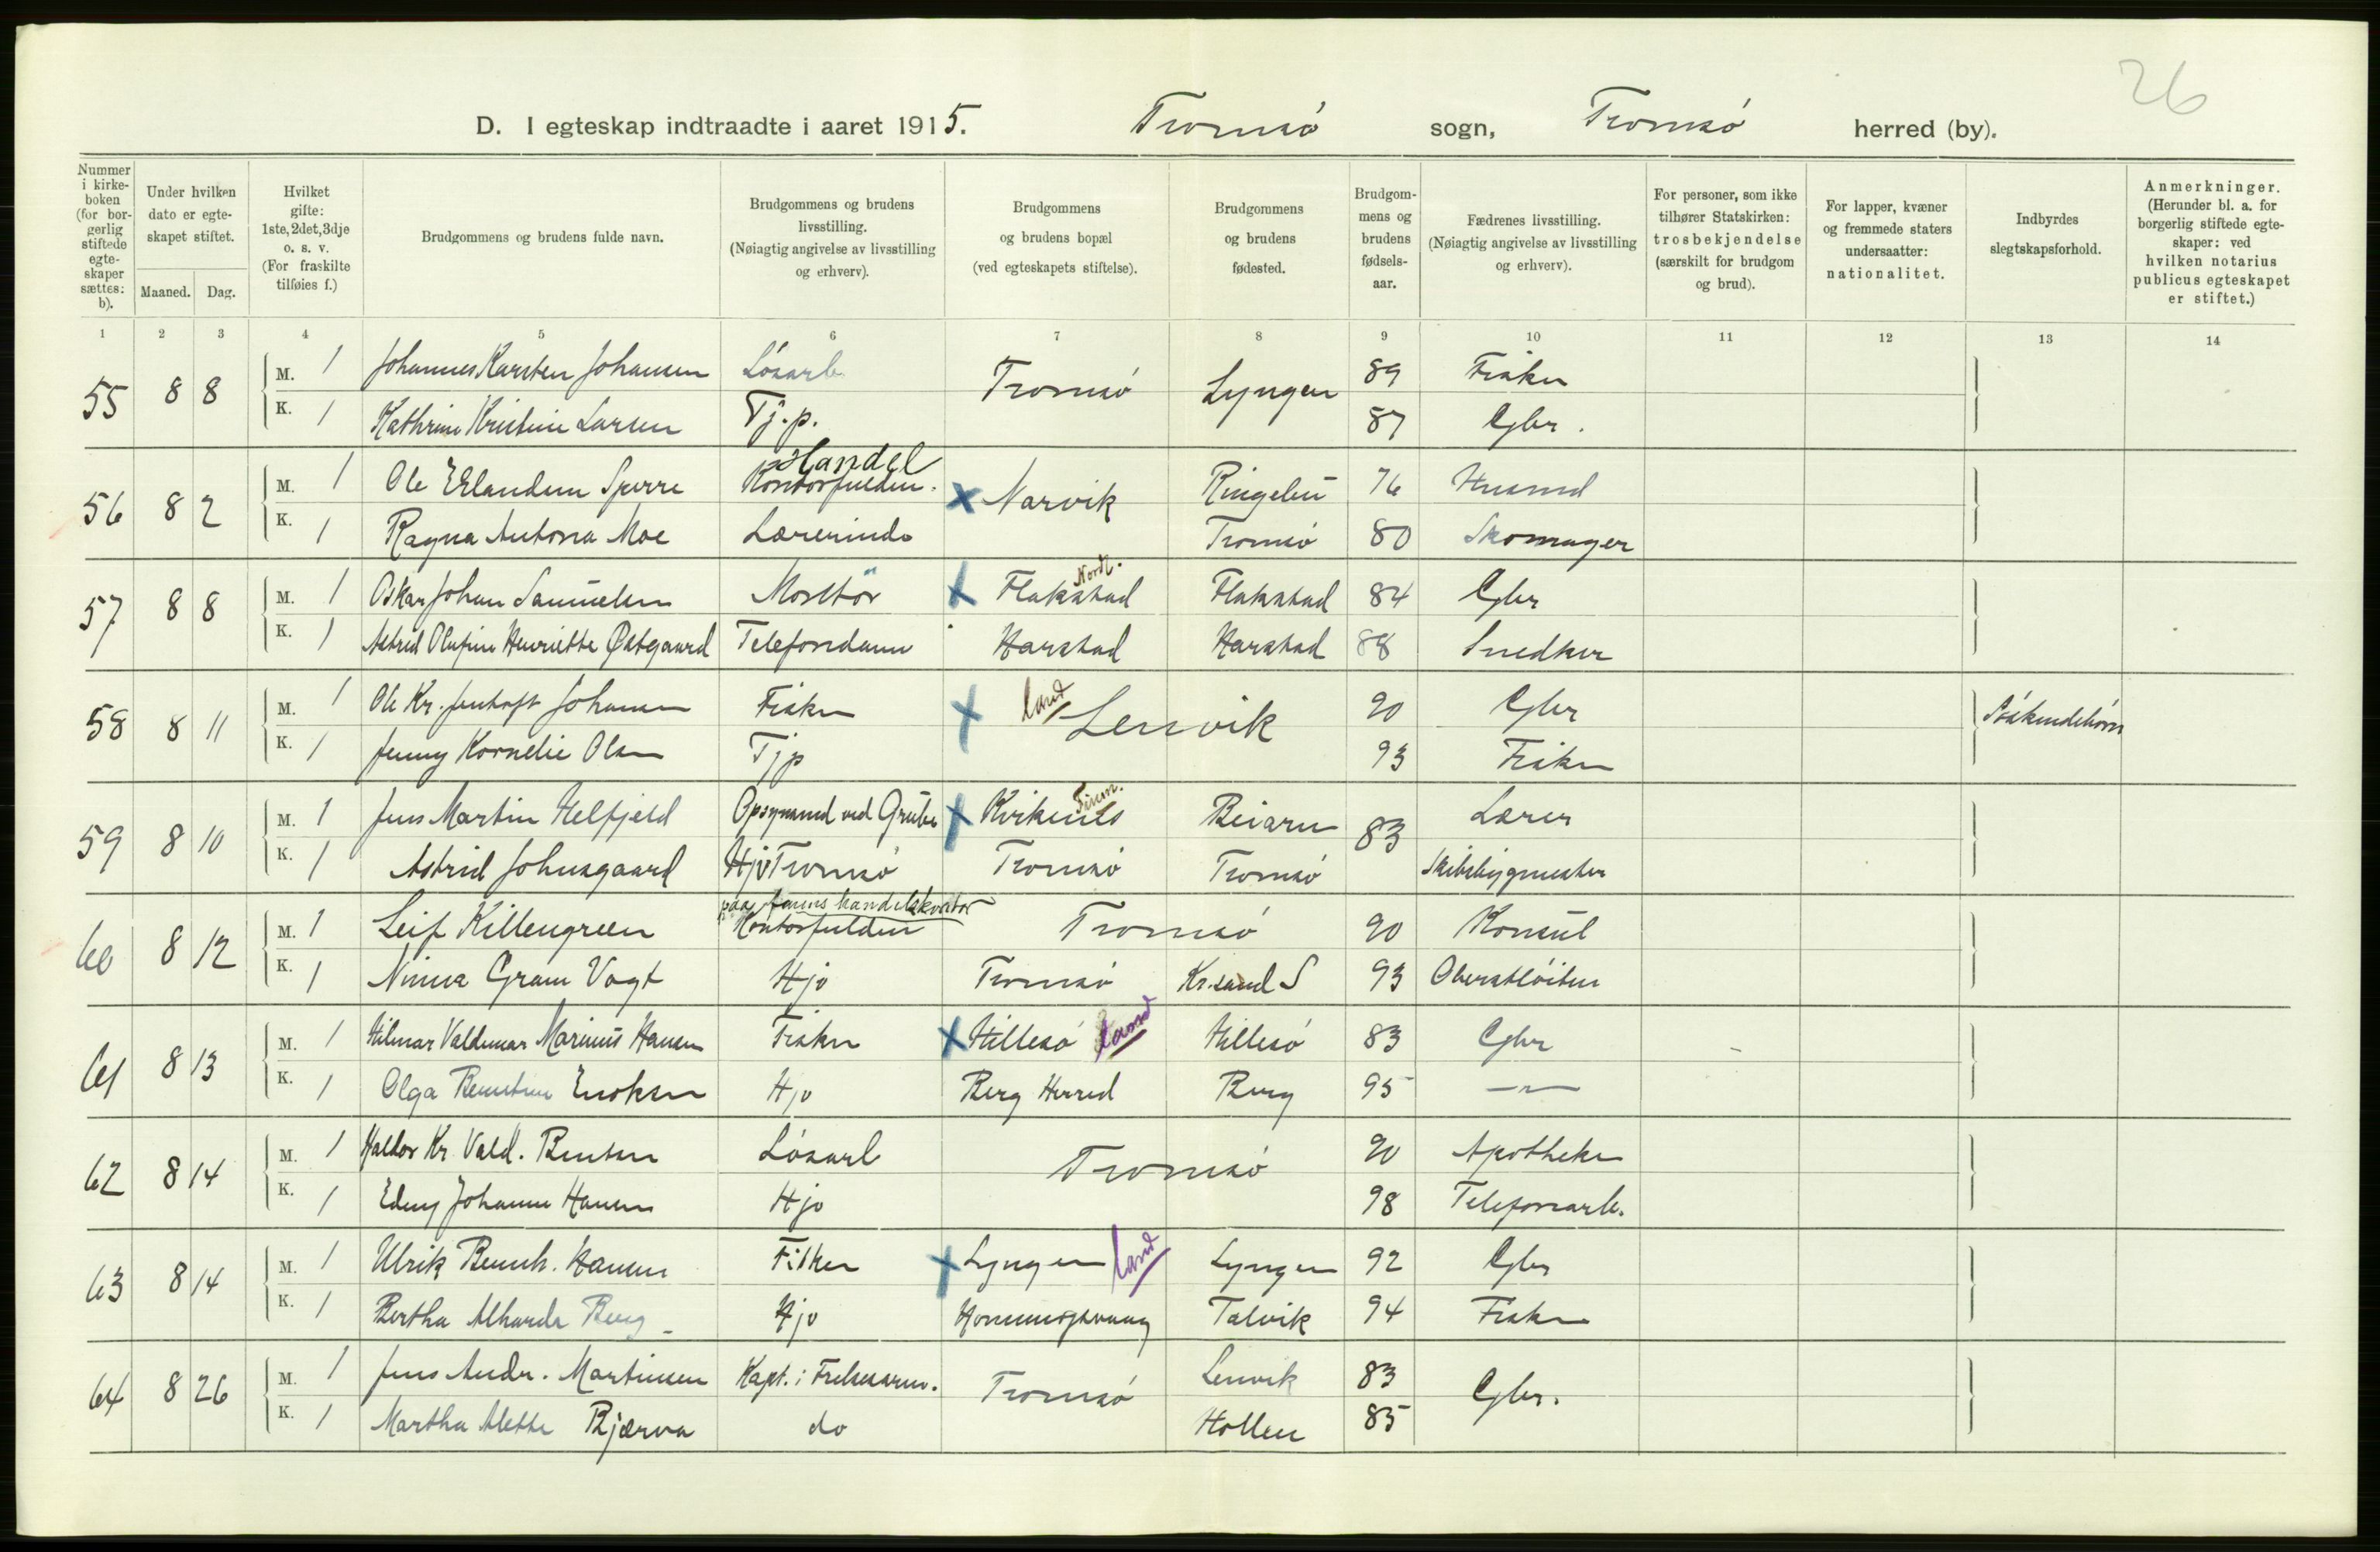 26
D. I egteskap indtraadte i aaret 1915. Tromsö sogn, Tromsö herred (by).
Nummer i kirke-boken (for bor-gerlig stiftede egte-skaper sættes: b).
Under hvilken dato er egte-skapet stiftet.
Maaned. Dag.
Hvilket gifte: 1ste, 2det, 3dje o. s. v. (For fraskilte tilføies f.)
Brudgommens og brudens fulde navn.
Brudgommens og brudens livsstilling. (Nøiagtig angivelse av livsstilling og erhverv).
Brudgommens og brudens bopæl (ved egteskapets stiftelse).
Brudgommens og brudens fødested.
Brudgom-mens og brudens fødsels-aar.
Fædrenes livsstilling. (Nøiagtig angivelse av livsstilling og erhverv).
For personer, som ikke tilhører Statskirken: trosbekjendelse (særskilt for brudgom og brud).
For lapper, kvæner og fremmede staters undersaatter: nationalitet.
Indbyrdes slegtskapsforhold.
Anmerkninger. (Herunder bl. a. for borgerlig stiftede egte-skaper: ved hvilken notarius publicus egteskapet er stiftet.)
1 2 3 4 5 6 7 8 9 10 11 12 13 14
55 8 8 M. 1 Johannes Karsten Johansen Lösarb Tromsö Lyngen 89 Fisker
K. 1 Kathrine Kristine Larsen Tj.p. 87 Gbr.
Handel
56 8 2 M. 1 Ole Erlandsen Sperre Kontorfuldm. x Narvik Ringebu 76 Husmd
K. 1 Ragna Antona Moe Lærerinde Tromsö 80 Skomager
Nordl.
57 8 8 M. 1 Oskar Johan Samuelsen x Flakstad Flakstad 84 Gbr
K. 1 Astrid Olufine Henriette Østgaard Telefondame Harstad Harstad 88 Snedker
58 8 11 M. 1 Ole Kr. Jentoft Johansen Fisker x land Lenvik 90 Gbr Söskendebörn
K. 1 Jenny Kornelie Olsen Tjp 93 Fisker
Finm.
59 8 10 M. 1 Jens Martin Helfjeld Opsynsmd ved Grube x Kirkenes Beiarn 83 Lærer
K. 1 Astrid Johnsgaard Hjv Tromsö Tromsö Tromsö Skibsbygmester
paa farens handelskontor
60 8 12 M. 1 Leif Killengreen Kontorfuldm Tromsö 90 Konsul
K. 1 Ninna Gram Vogt Hjv Tromsö Kr.sand S 93 Oberstlöitn
61 8 13 M. 1 Hilmar Valdemar Marinus Hansen Fisker x Hillesö land Hillesö 83 Gbr
K. 1 Olga Enoksen Hjv Berg Herred Berg 95 —"—
62 8 14 M. 1 Haldor Kr. Vald. Bentsen Lösarb Tromsö 90 Apotheker
K. 1 Edny Johanne Hansen Hjv 98 Telefonarb.
63 8 14 M. 1 Ulrik Bernh. Hansen Fisker x Lyngen land Lyngen 92 Gbr
K. 1 Bertha Alharda Berg Hjv Honningsvaag Talvik 94 Fisker
64 8 26 M. 1 Jens Andr. Martinsen Kapt. i Frelsesarm. Tromsö Lenvik 83 Gbr.
K. 1 Martha Alette Bjærva do Hollen 85